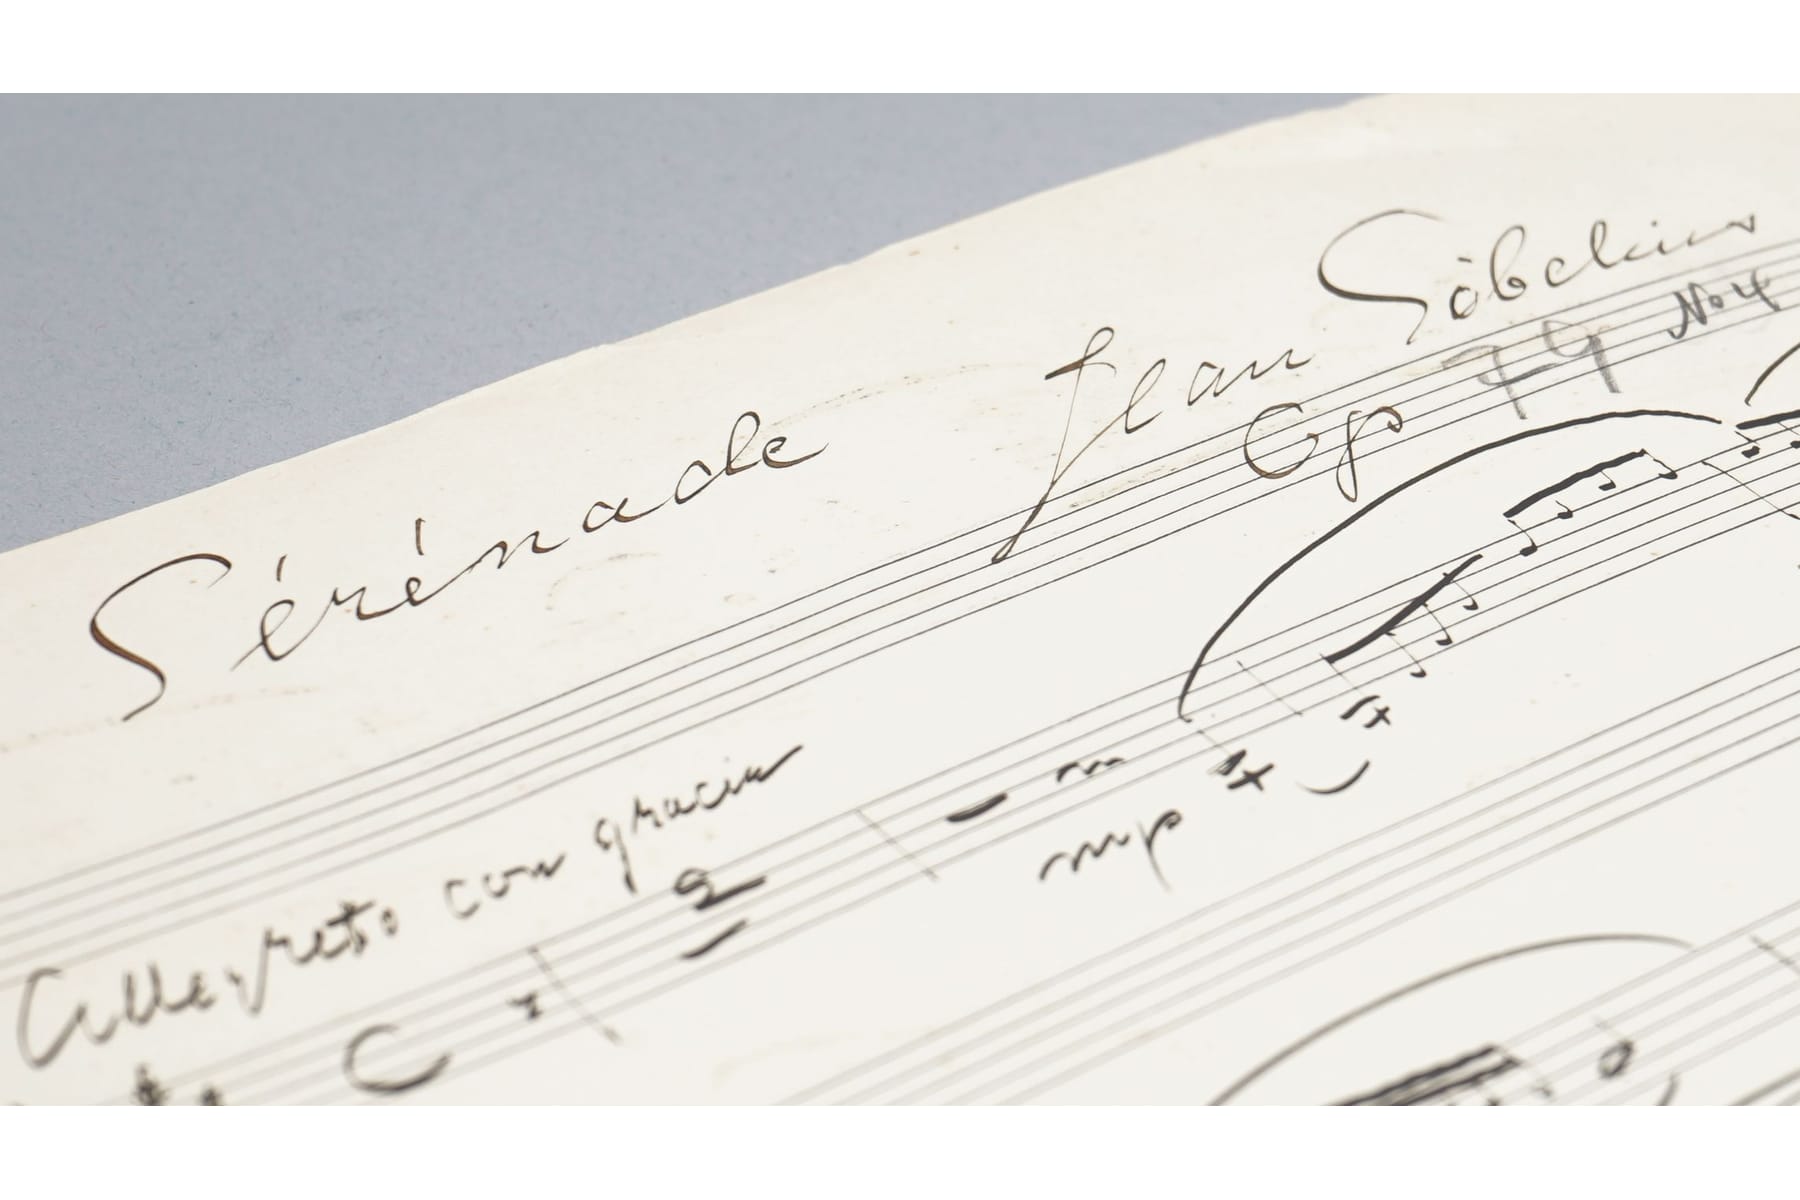 Sérénade Jean Sibelius
Op 79 No 4
Allegreto con gracia
C
2
mp